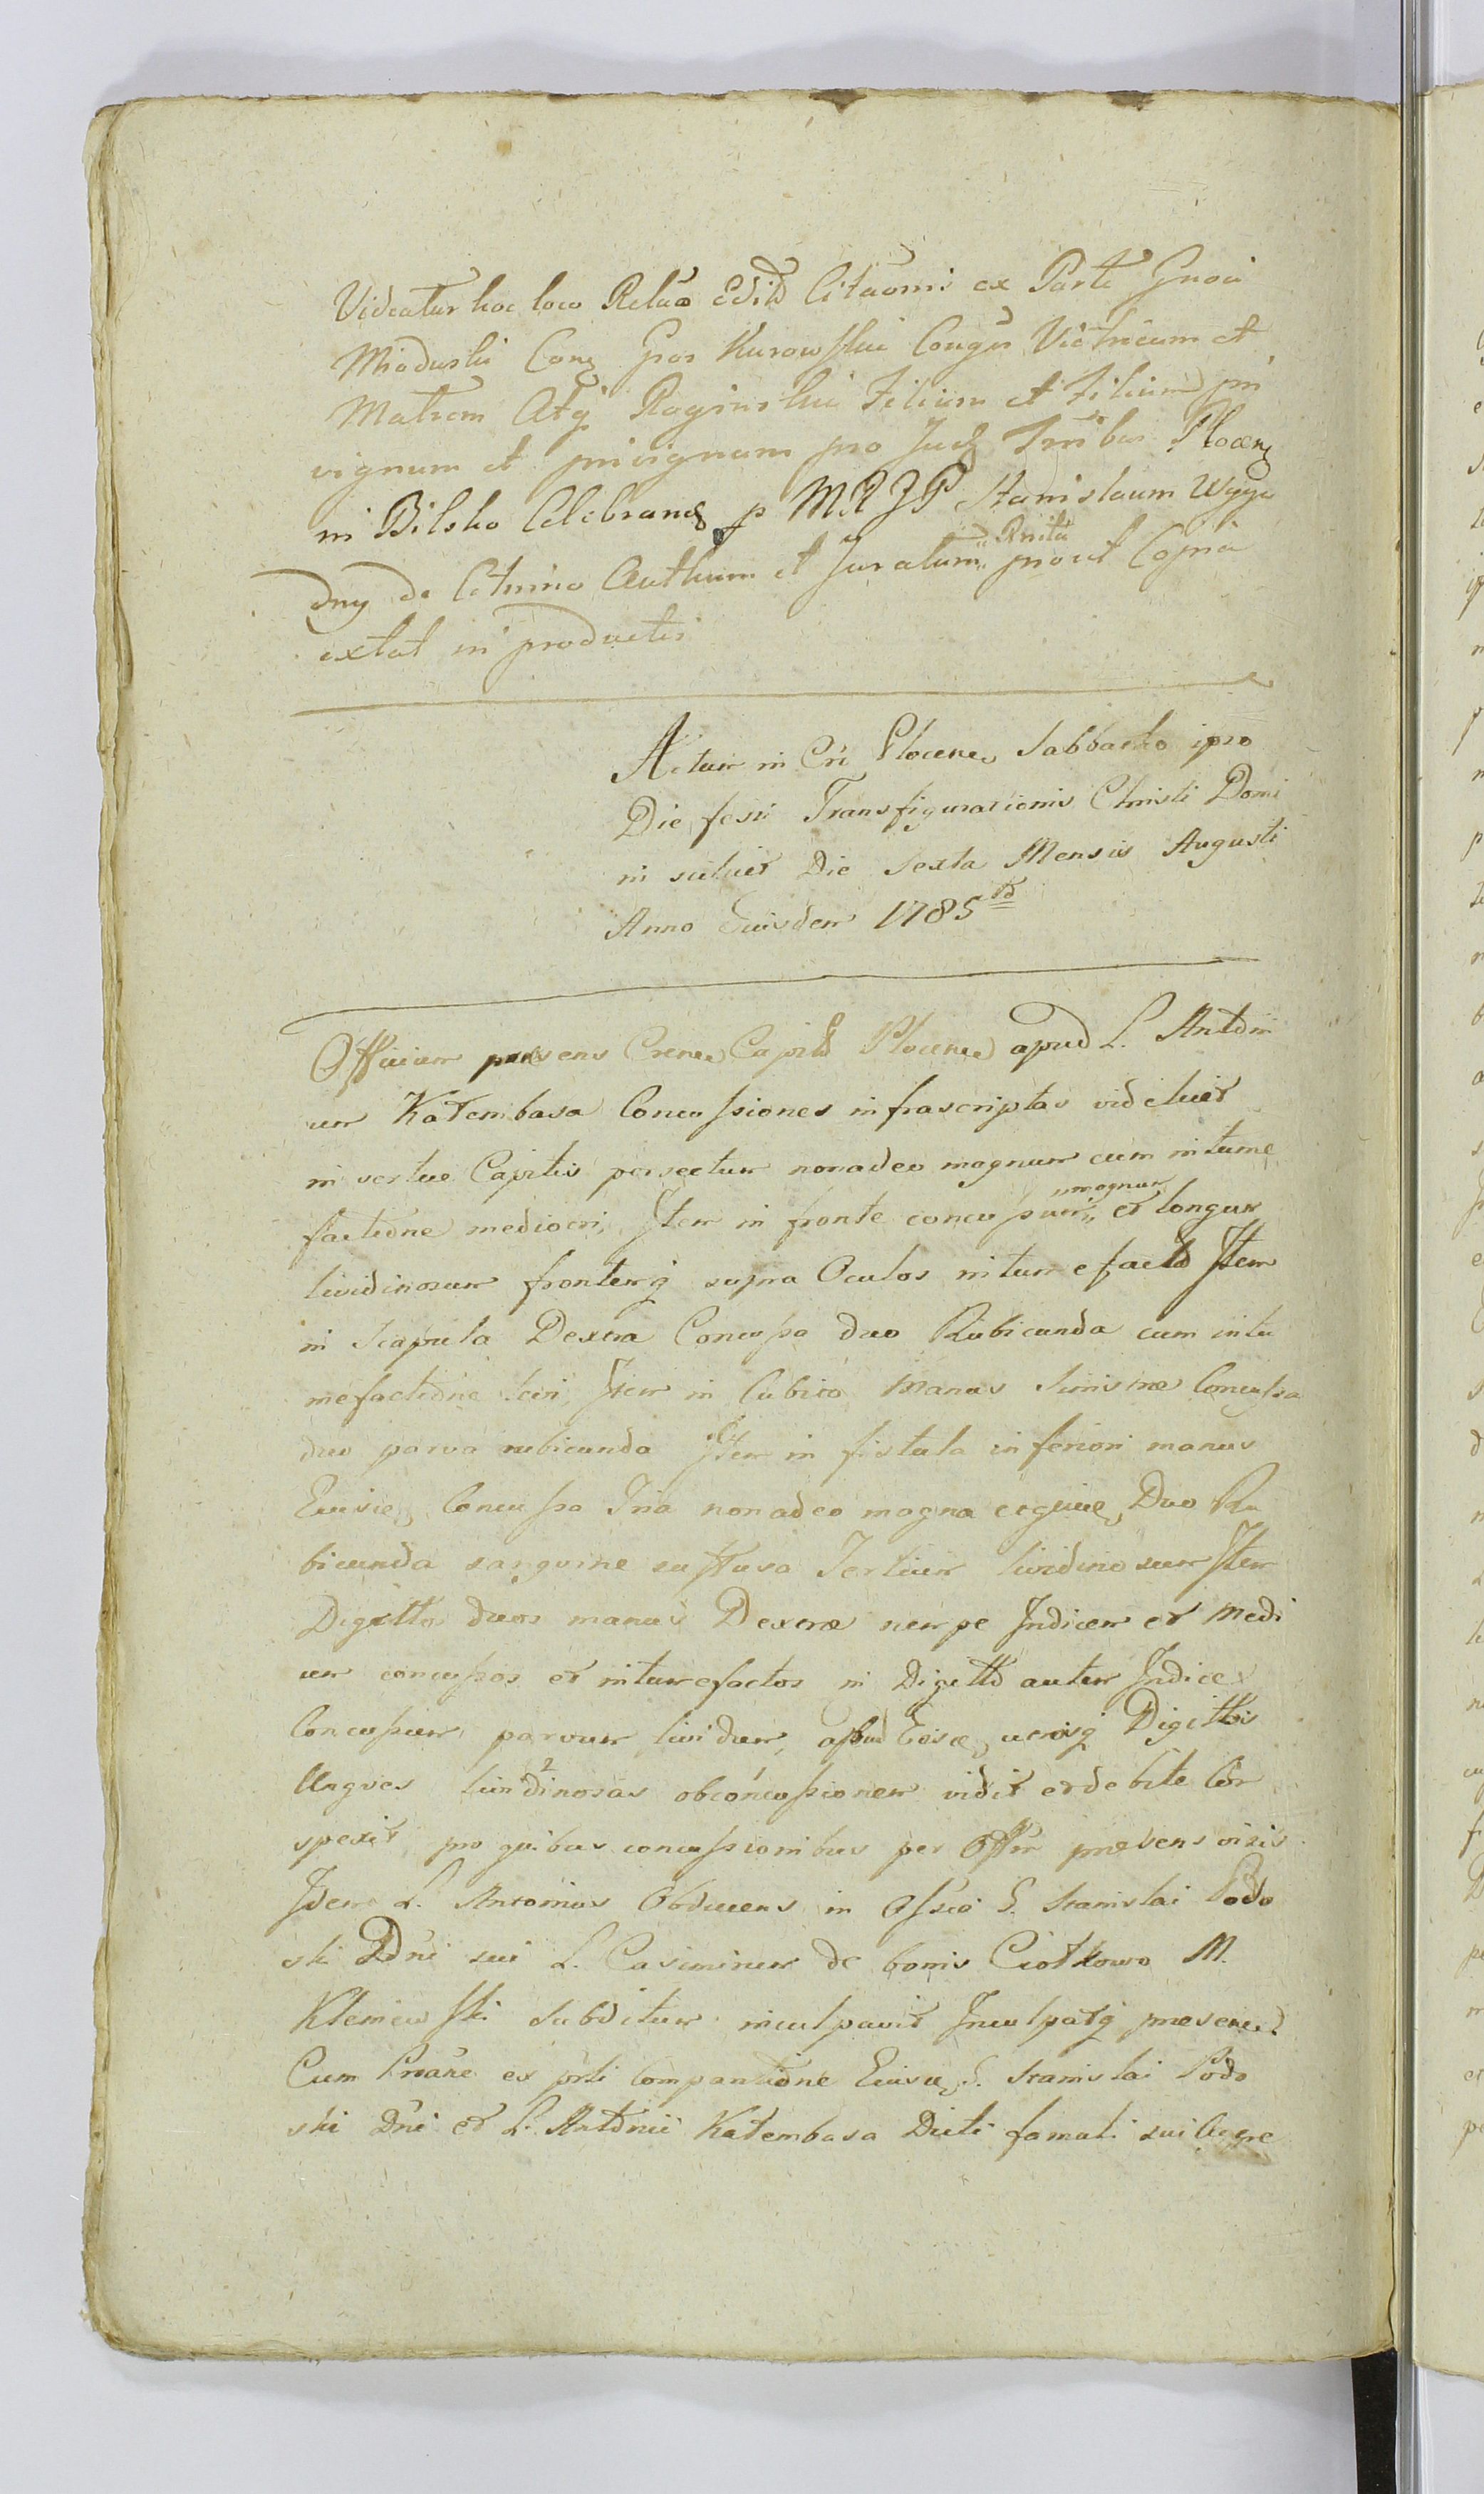 Videatur hoc loco Relaõ Edit Citaonis ex Parte Gnosi
Mioduski Con Gnos Kurowskie Conges Victricum et
Matrem Atq Raginskie Filium et Filiam pri
vignum et privignam pro Jud Tribus Plocen
in Bilsko Celebran p MRJP Stanislaum
Dny de Autkum et Juratum prout Copia
extat in productis
Actum in Cri Plocens Sabbatho ipso
Die festi Transfigurationis Christi Domi
ni scilicet Die Sexta Mensis Augusti
Anno Eiusdem 1785
Officium praesens Crense Capit Plocense apud L. Antoni
um Katembasa Concussiones infrascriptas videlicet
in vertice Capitis persectum nonadeo magnum cum intume
factione mediocri, Item in fronte concussum magnum et longum
lividinosum frontemq supra Oculos intumefacto Item
in Scapula Dextra Concussa duo Rubicunda cum intu
mefactione levi, Item in Cubito Manus Sinistrae Concussa
duo parva rubicunda Item in fistula inferiori manus
Eiusde Concussa Tria nonadeo magna Duo Ru
bicunda sanguine suffusa Tertium lividinosum Item
Digittos duos manus Dextrae nempe Indicem et Medi
um concussos et intumefactos in Digitto autem Indice
Concussum parvum lividum, apud Eosde utrosq Digittos
Ungves lividinosas obconcussionem vidit et debite Con
spexit, pro quibus concussionibus per Offm praesens visis
Idem L. Antonius Obducens in Offcio G. Stanislai Podo
ski Dni sui L. Casimirum de bonis Ciotkowo M.
Kleniewski Subditum inculpavit Inculpatq praesens
Cum ex prti Comparitione Eiusde G. Stanislai Podo
ski Dni et L. Antonii Katembasa Dicti famuli sui